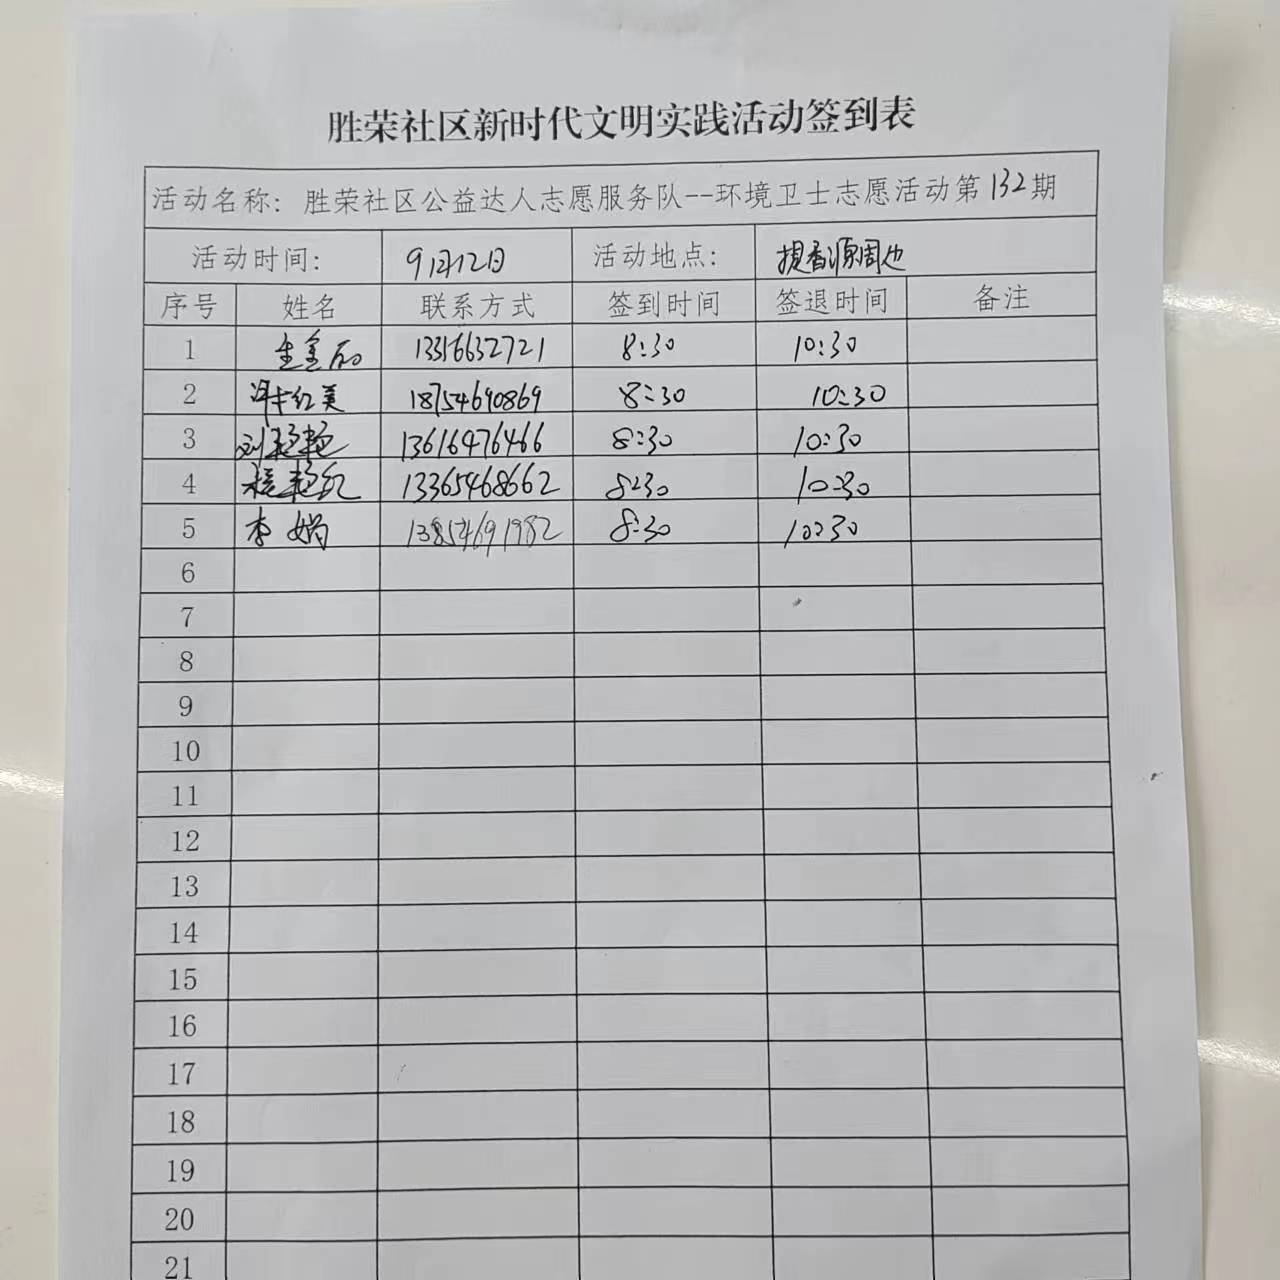 胜荣社区新时代文明实践活动签到表
活动名称：胜荣社区公益达人志愿服务队--环境卫士志愿活动第132期
活动时间： 9月12日 活动地点： 提香源周边
序号 姓名 联系方式 签到时间 签退时间 备注
1 13316632721 8:30 10:30
2 红美 18754690869 8:30 10:30
3 刘艳艳 13616476466 8:30 10:30
4 程艳红 13365468662 8:30 10:30
5 李娟 13854691982 8:30 10:30
6
7
8
9
10
11
12
13
14
15
16
17
18
19
20
21